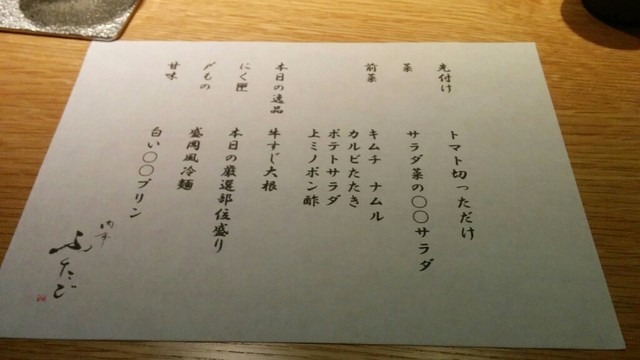 先付け
トマト切っただけ
菜
サラダ菜の〇〇サラダ
前菜
キムチ ナムル
カルビたたき
ポテトサラダ
上ミノポン酢
本日の逸品
牛すじ大根
にく匣
本日の厳選部位盛り
〆もの
盛岡風冷麺
甘味
白い〇〇プリン
ふたご